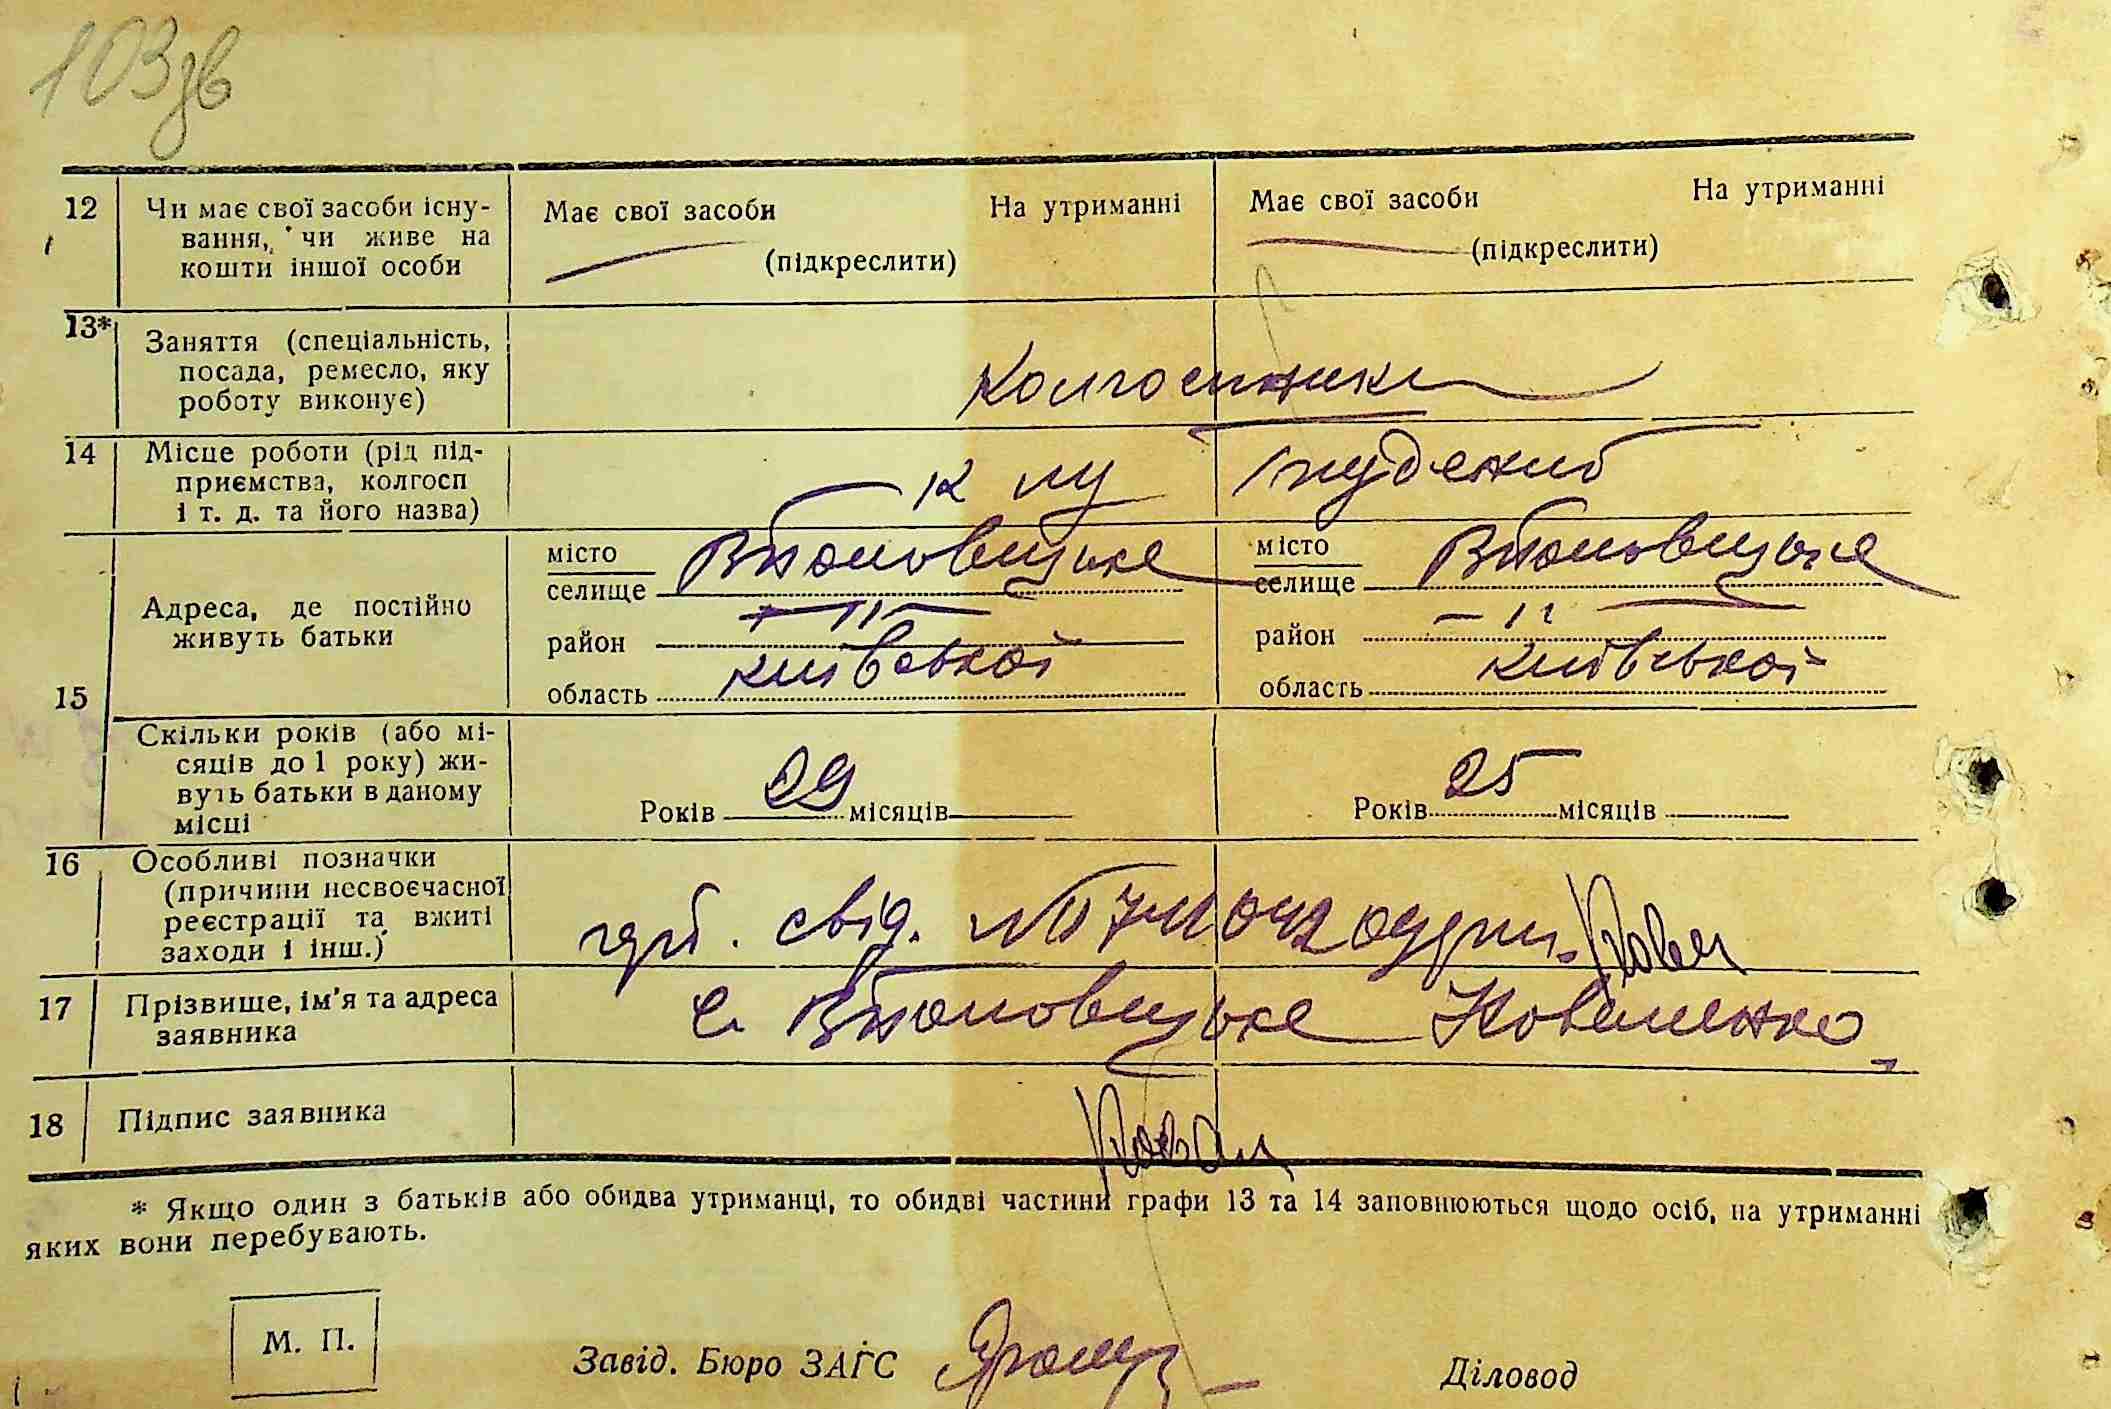 103зв
12 Чи має свої засоби існу- Має свої засоби На утриманні Має свої засоби На утриманні
вання, чи живе на (підкреслити) (підкреслити)
кошти іншої особи
13* Заняття (спеціальність,
посада, ремесло, яку Колгоспники
роботу виконує)
14 Місце роботи (рід під-
приємства, колгосп
і т. д. та його назва)
15 Адреса, де постійно
живуть батьки
місто
селище
район — 11 —
область Київської
місто
селище
район — 11
область Київської
Скільки років (або мі-
сяців до 1 року) жи-
вуть батьки в даному
місці
Років 29 місяців Років 25 місяців
16 Особливі позначки
(причини несвоєчасної
реєстрації та вжиті
заходи і інш.) свід.
17 Прізвище, ім'я та адреса
заявника с. Коваленко
18 Підпис заявника
* Якщо один з батьків або обидва утриманці, то обидві частини графи 13 та 14 заповнюються щодо осіб, на утриманні
яких вони перебувають.
М. П.
Завід. Бюро ЗАГС Діловод